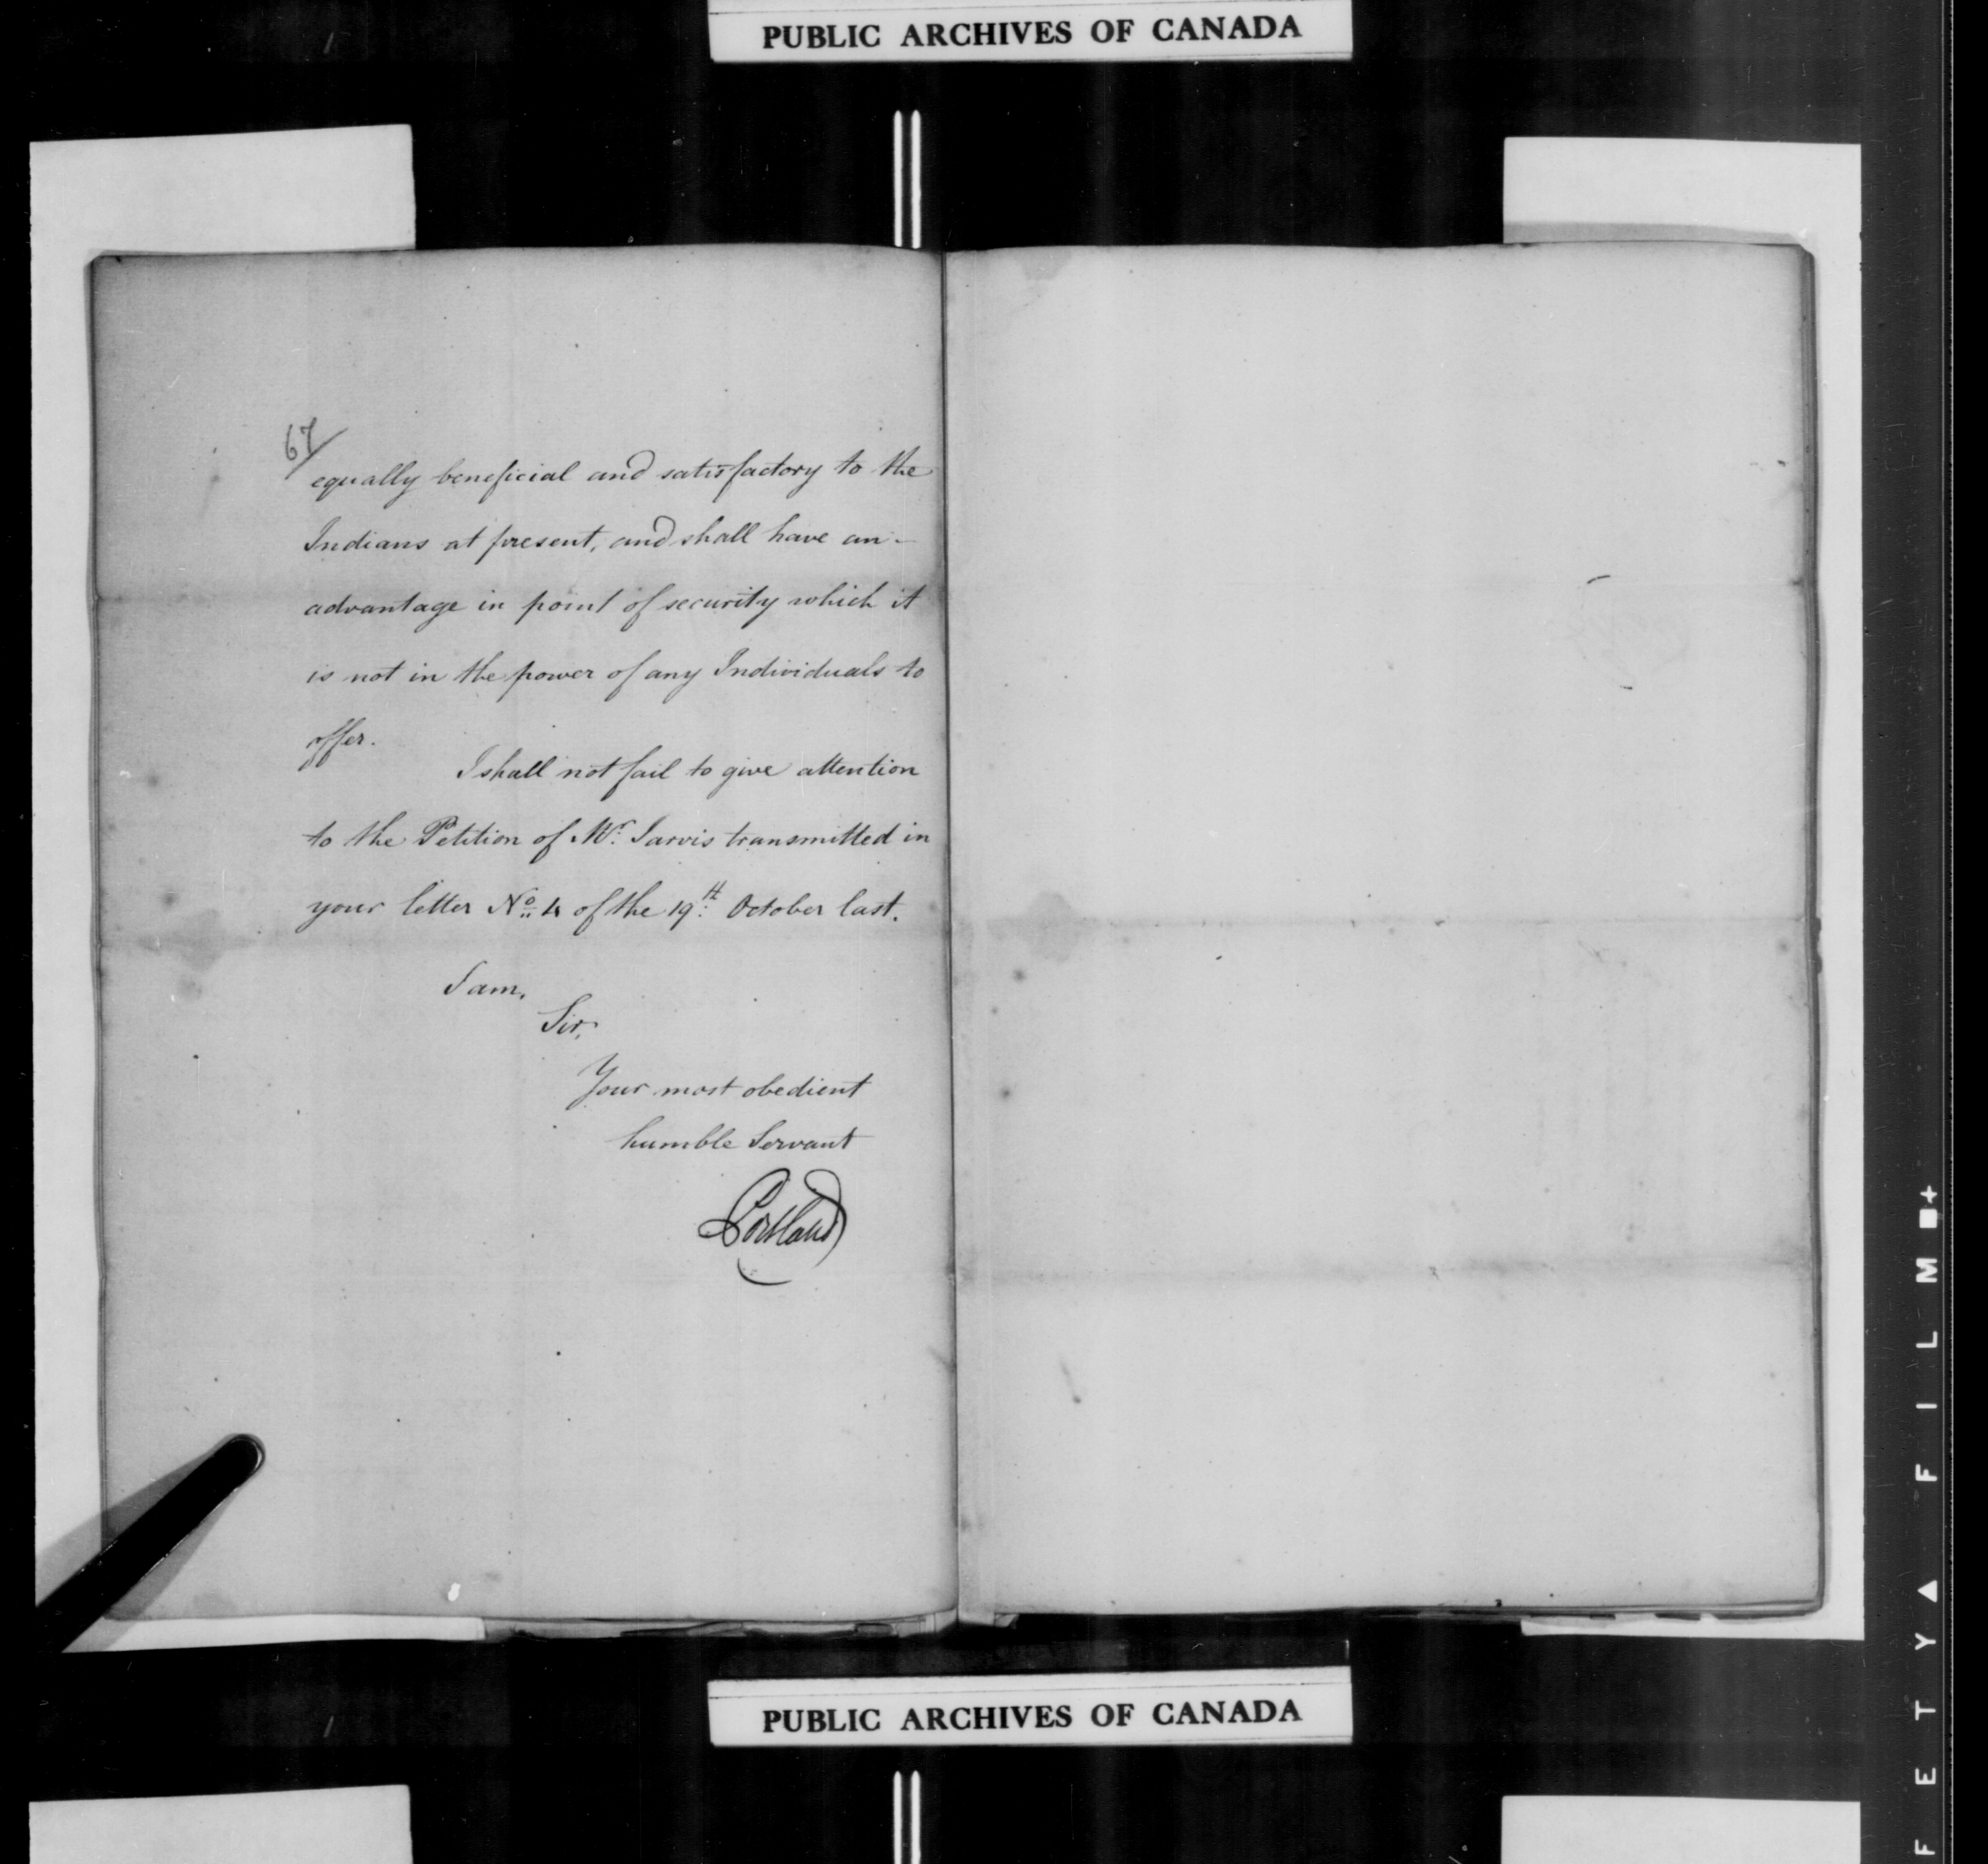 PUBLIC ARCHIVES OF CANADA
67
equally beneficial and satisfactory to the
Indians at present, and shall have an-
advantage in point of security which it
is not in the power of any Individuals to
offer.
I shall not fail to give attention
to the Petition of Mr. Jarvis transmitted in
your letter No. 4 of the 19th October last.
I am,
Sir,
Your most obedient
humble Servant
Portland
PUBLIC ARCHIVES OF CANADA
F E T Y ▲ F I L M